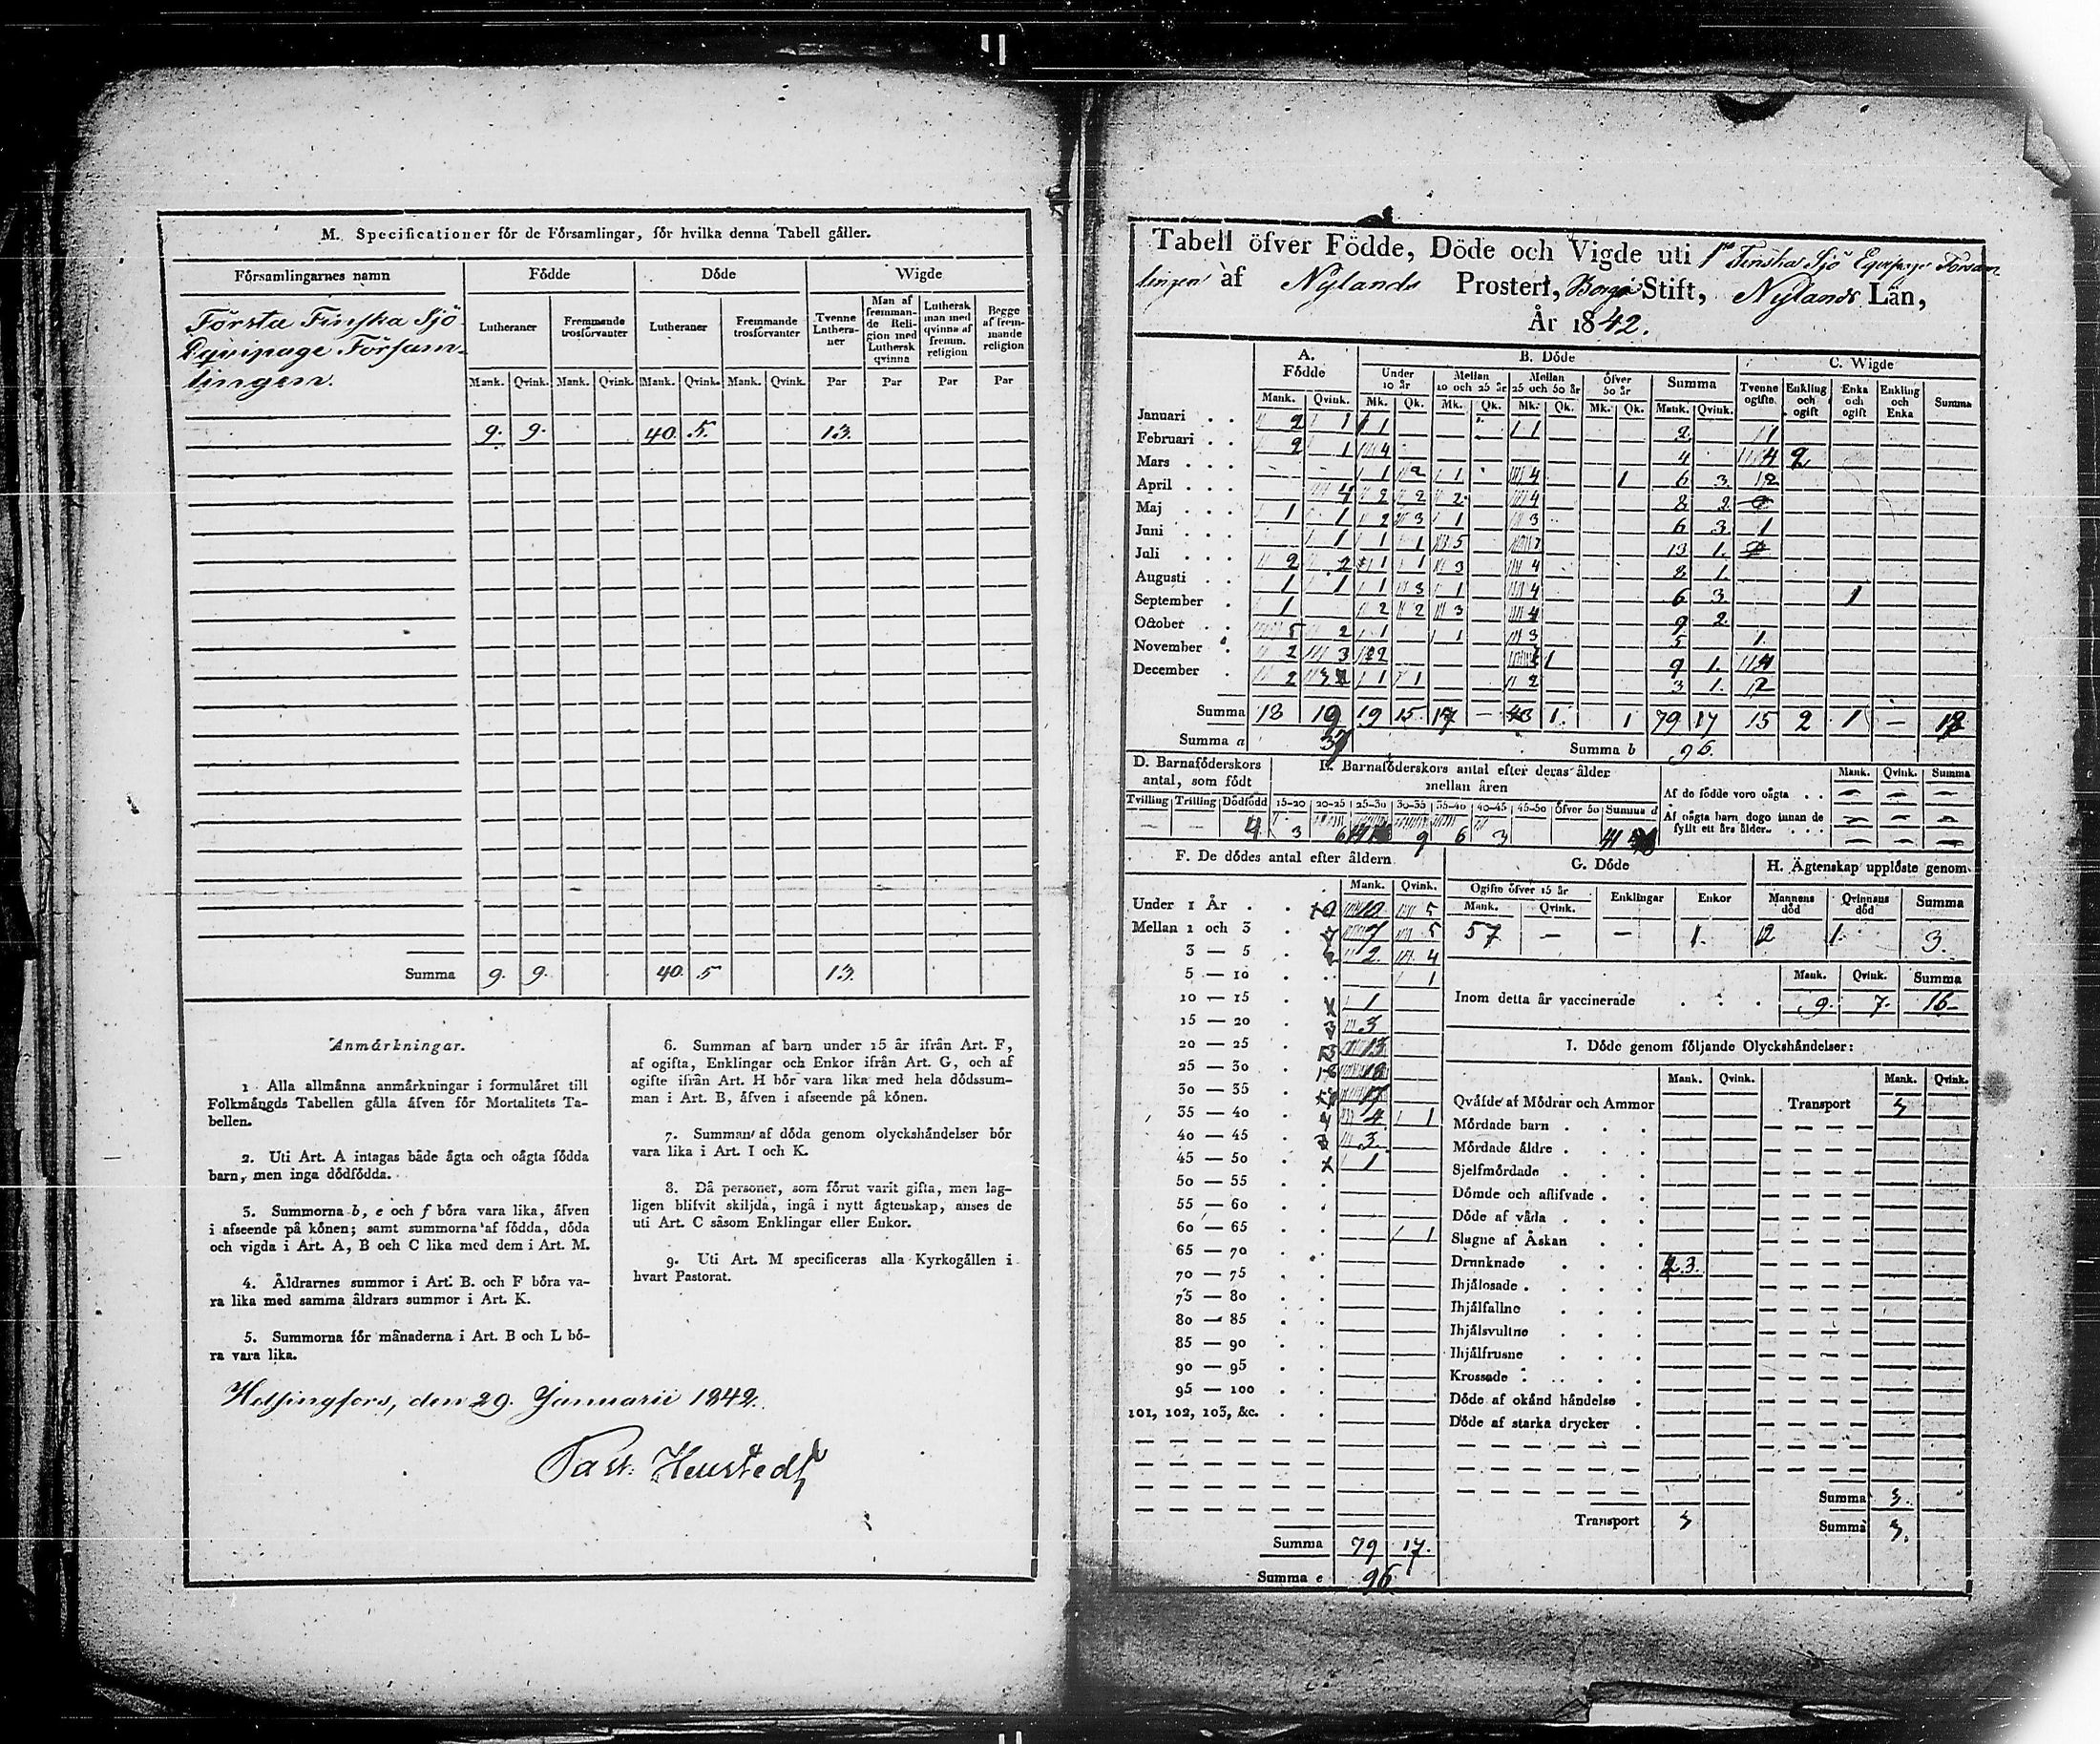 M. Specificationer för de Församlingar, för hvilka denna Tabell gäller.
Församlingarnes namn Födde Döde Wigde
Lutheraner Fremmande trosförvanter Lutheraner Fremmande trosförvanter Tvenne Lutheraner Man af fremmande Religion med Luthersk qvinna Luthersk man med qvinna af fremm. religion Begge af fremmande religion
Mank. Qvink. Mank. Qvink. Mank. Qvink. Mank. Qvink. Par Par Par Par
Första Finska Sjö
Eqvipage Försam-
lingen.
9. 9. 40. 5. 13.
Summa 9. 9. 40. 5. 13.
Anmärkningar.
1 Alla allmänna anmärkningar i formuläret till
Folkmängds Tabellen gälla äfven för Mortalitets Ta-
bellen.
2. Uti Art. A intagas både ägta och oägta födda
barn, men inga dödfödda.
3. Summorna b, e och f böra vara lika, äfven
i afseende på könen; samt summorna af födda, döda
och vigda i Art. A, B och C lika med dem i Art. M.
4. Åldrarnes summor i Art. B. och F böra va-
ra lika med samma åldrars summor i Art. K.
5. Summorna för månaderna i Art. B och L bö-
ra vara lika.
6. Summan af barn under 15 år ifrån Art. F,
af ogifta, Enklingar och Enkor ifrån Art. G, och af
ogifte ifrån Art. H bör vara lika med hela dödssum-
man i Art. B, äfven i afseende på könen.
7. Summan af döda genom olyckshändelser bör
vara lika i Art. I och K.
8. Då personer, som förut varit gifta, men lag-
ligen blifvit skiljda, ingå i nytt ägtenskap, anses de
uti Art. C såsom Enklingar eller Enkor.
9. Uti Art. M specificeras alla Kyrkogällen i
hvart Pastorat.
Helsingfors, den 29. Januarii 1842.
Past:
Tabell öfver Födde, Döde och Vigde uti 1sta Finska Sjö Eqvipage Försam
lingen af Nylands Prosteri, Borgå Stift, Nylands Län,
År 1842.
A. Födde B. Döde C. Wigde
Under 10 år Mellan 10 och 25 år Mellan 25 och 50 år Öfver 50 år Summa Tvenne ogifte Enkling och ogift Enka och ogift Enkling och Enka Summa
Mank. Qvink. Mk. Qk. Mk. Qk. Mk. Qk. Mk. Qk. Mank. Qvink.
Januari 2 1 1 1 2 1
Februari 2 1 4 4 4 2
Mars 1 2 1 4 1 6 3 2
April 4 2 2 2 4 8 2
Maj 1 1 2 3 1 3 6 3 1
Juni 1 1 1 5 7 13 1.
Juli 2 2 1 1 3 4 8 1.
Augusti 1 1 1 3 1 4 6 3 1
September 1 2 2 3 4 9 2
October 5 2 1 1 3 5 1.
November 2 3 2 1 9 1. 4
December 2 1 1 2 3 1. 2
Summa 18 19 19 15. 17 — 43 1. 1 79 17 15 2 1 — 18
Summa a 37 Summa b 96.
D. Barnaföderskors antal, som födt
E. Barnaföderskors antal efter deras ålder mellan åren
Mank. Qvink. Summa
Tvilling Trilling Dödfödd 15—20 20—25 25—30 30—35 35—40 40—45 45—50 Öfver 50 Summa d
— — 4 3 6 9 6 3 41
Af de födde voro oägta . . — — —
Af oägta barn dogo innan de
fyllt ett års ålder. . . . — — —
F. De dödes antal efter åldern
Mank. Qvink.
Under 1 År 10 5
Mellan 1 och 3 7 5
3 — 5 2 4
5 — 10 1
10 — 15 1
15 — 20 3
20 — 25 13
25 — 30 18
30 — 35 17
35 — 40 4 1
40 — 45 3.
45 — 50 1
50 — 55
55 — 60
60 — 65 1
65 — 70
70 — 75
75 — 80
80 — 85
85 — 90
90 — 95
95 — 100
101, 102, 103, &c.
Summa 79 17.
Summa e 96
G. Döde
Ogifte öfver 15 år Enklingar Enkor
Mank. Qvink.
57 — — 1.
H. Ägtenskap upplöste genom
Mannens död Qvinnans död Summa
2 1. 3.
Mank. Qvink. Summa
Inom detta år vaccinerade . . . 9. 7. 16—
I. Döde genom följande Olyckshändelser:
Mank. Qvink. Mank. Qvink.
Qväfde af Mödrar och Ammor Transport 3
Mördade barn
Mördade äldre
Sjelfmördade
Dömde och aflifvade
Döde af våda
Slagne af Åskan
Drunknade 3.
Ihjälosade
Ihjälfallne
Ihjälsvultne
Ihjälfrusne
Krossade
Döde af okänd händelse
Döde af starka drycker
Summa 3.
Transport 3 Summa 3.